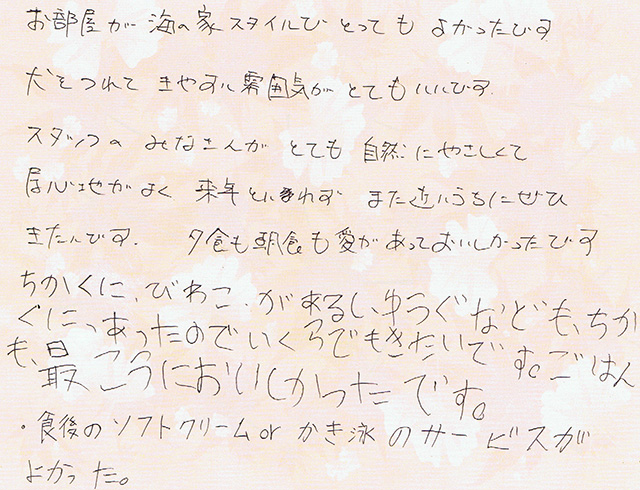 お部屋が海の家スタイルで とっても よかったです
犬をつれて きやすい雰囲気が とてもいいです.
スタッフの みなさんが とても 自然にやさしくて
居心地がよく 来年といわず また近いうちにぜひ
きたいです. 夕食も朝食も愛があっておいしかったです
ちかくに、びわこ、があるし、ゆうぐなども、ちか
くに、あったのでいくらでもきたいです。ごはん
も、最こうにおいしかったです。
・食後のソフトクリームor かき氷のサービスが
よかった。